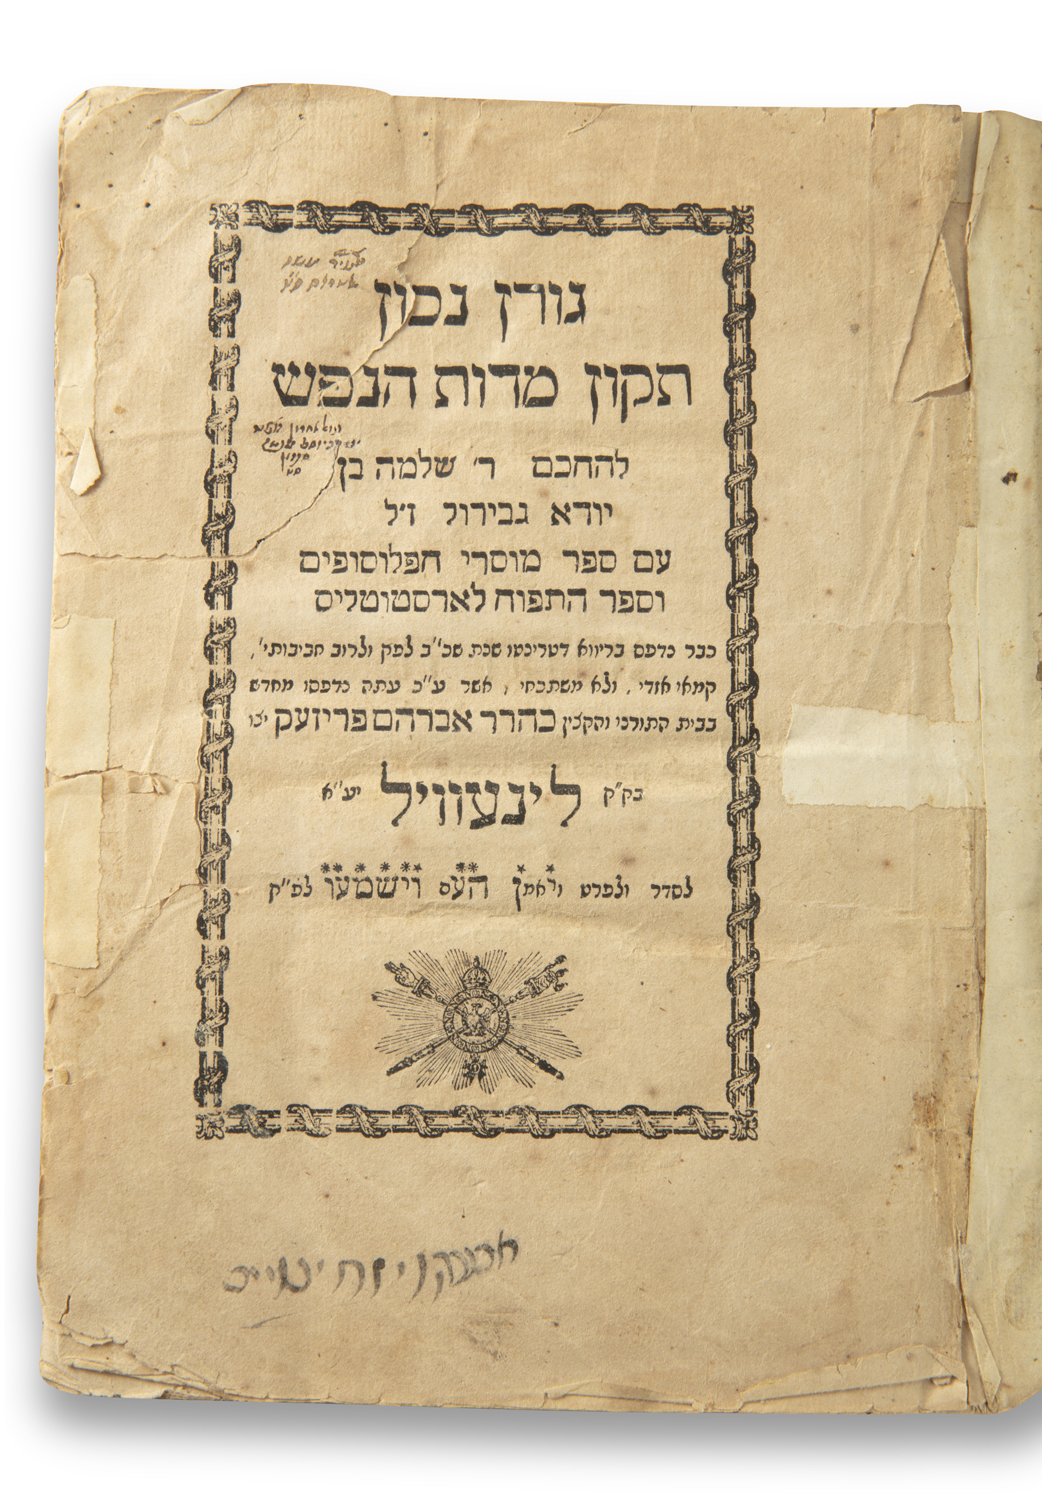 גורן נכון
תקון מדות הנפש
להחכם ר׳ שלמה בן
יודא גבירול ז׳ל
עם ספר מוסרי הפלוסופים
וספר התפוח לארסטוטליס
כבר נדפס בריווא דטרינטו שנת שכ״ב לפק ולרוב חביבותי׳,
קמאי אזדי, ולא משתכחי, אשר ע״כ עתה נדפסו מחדש
בבית התורני והקצין כהרר אברהם פריזעק יצו
בק״ק לינעוויל יע״א
לסדר ולפרט ויאמן העם וישמעו לפ״ק